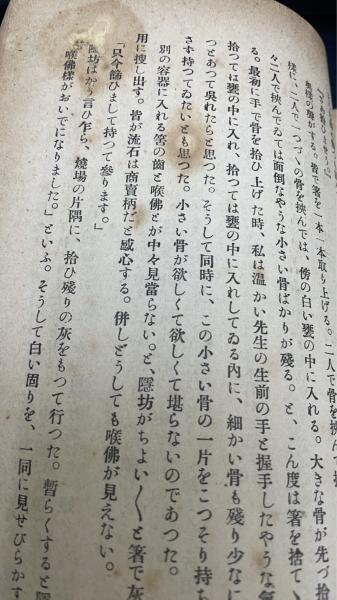 奥様の聲がする。皆で箸を一本一本取り上げる。二人で骨を挾んで
樣に、二人で一つづゝの骨を挾んでは、傍の白い甕の中に入れる。大きな骨が先づ拾
々二人で挾んでゐては面倒なやうな小さい骨ばかりが殘る。と、こん度は箸を捨てゝ
る。最初に手で骨を拾ひ上げた時、私は温かい先生の生前の手と握手したやうな氣
拾つては甕の中に入れ、拾つては甕の中に入れしてゐる内に、細かい骨も殘り少なに
つとあつて吳れたらと思つた。そうして同時に、この小さい骨の一片をこつそり持ち
さず持つてゐたいとも思つた。小さい骨が欲しくて欲しくて堪らないのであつた。
別の容器に入れる筈の齒と喉佛とが中々見當らない。と、隱坊がちよい〱と箸で灰
用に搜し出す。皆が流石は商賣柄だと感心する。併しどうしても喉佛が見えない。
「只今篩ひまして持つて參ります。」
隱坊はかう言ひ乍ら、燒場の片隅に、拾ひ殘りの灰をもつて行つた。暫らくすると隱
「喉佛樣がおいでになりました。」といふ。そうして白い固りを、一同に見せびらかす